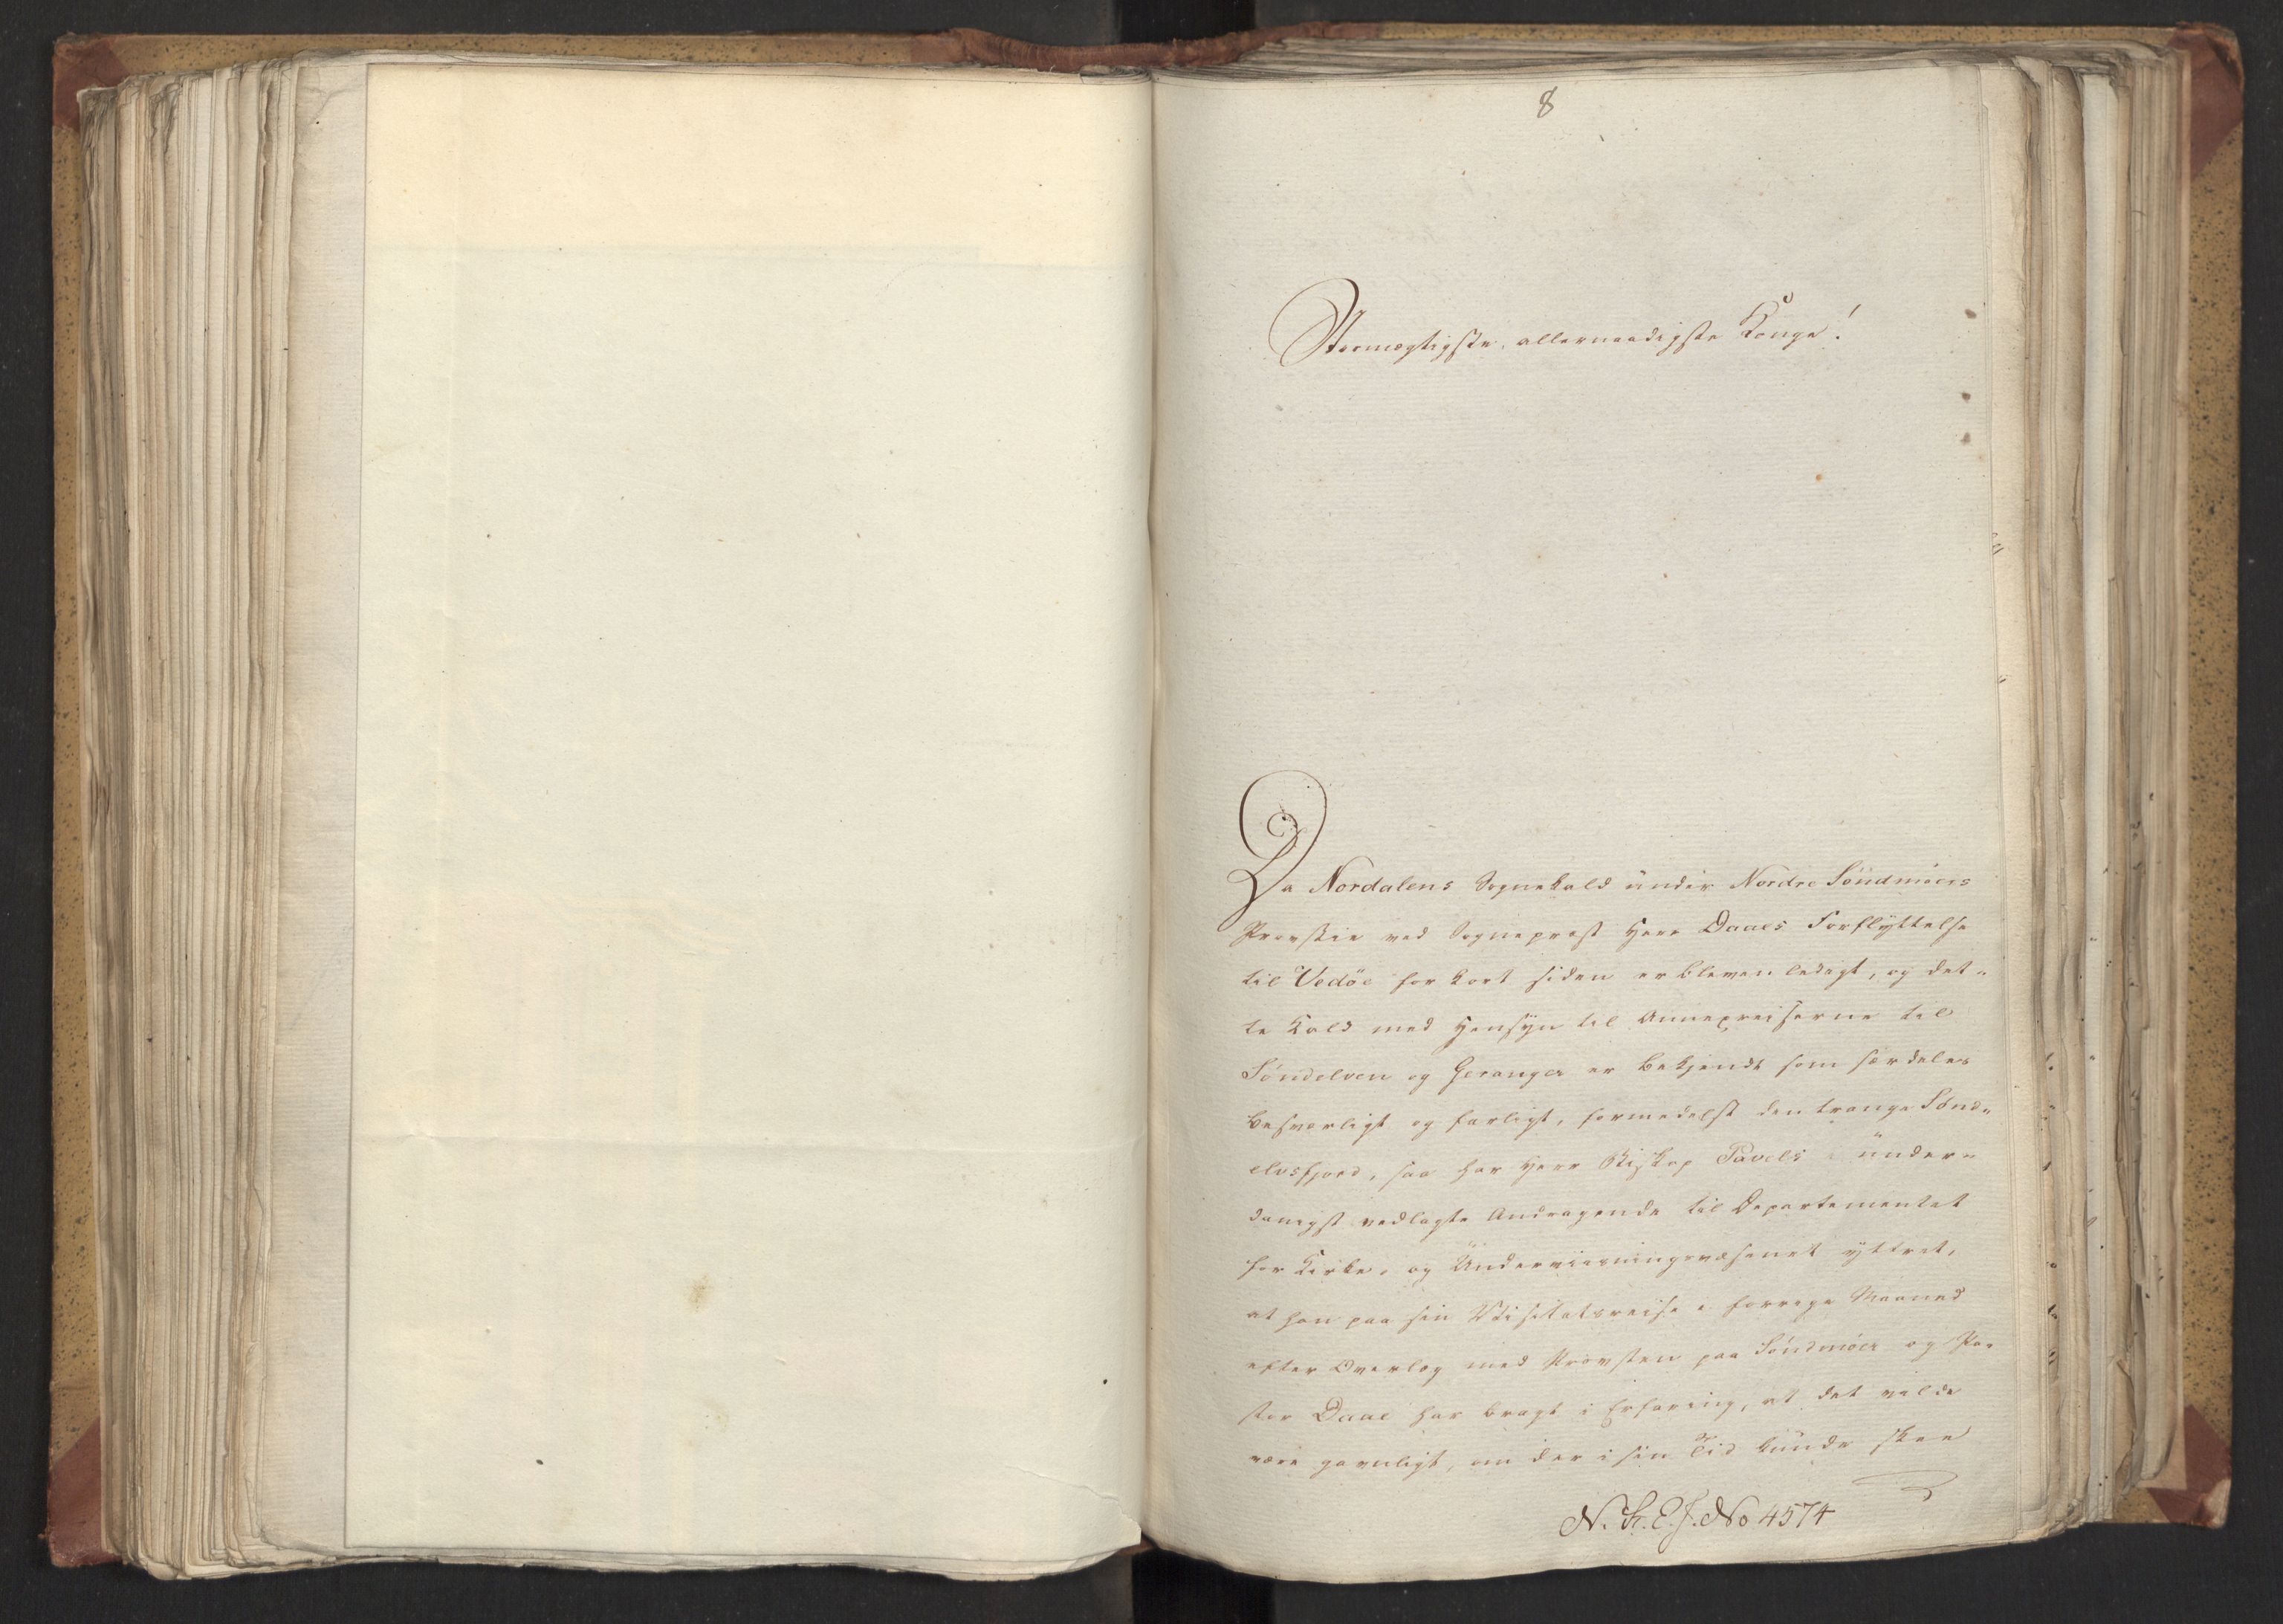 8
Stormægtigste, allernaadigste Konge!
Da Nordalens Sognekald under Nordre Söndmöers
Provstie ved Sognepræst Herr Daaes Forflyttelse
til Vedöe for kort siden er bleven ledigt, og det-
te Kald med Hensyn til Annexreiserne til
Söndelven og Geranger er bekjendt som særdeles
besværligt og farligt, formedelst den trange Sönd-
elvsfjord, saa har Herr Biskop Pavels i under-
danigst vedlagte Andragende til Departementet
for Kirke- og Underviisningsvæsenet yttret,
at han paa sin Visitatsreise i forrige Maaned
efter Overlæg med Provsten paa Söndmöer og Pa-
stor Daae har bragt i Erfaring, at det vilde
være gavnligt, om der i sin Tid kunde skee
N. K. E. J. No 4574